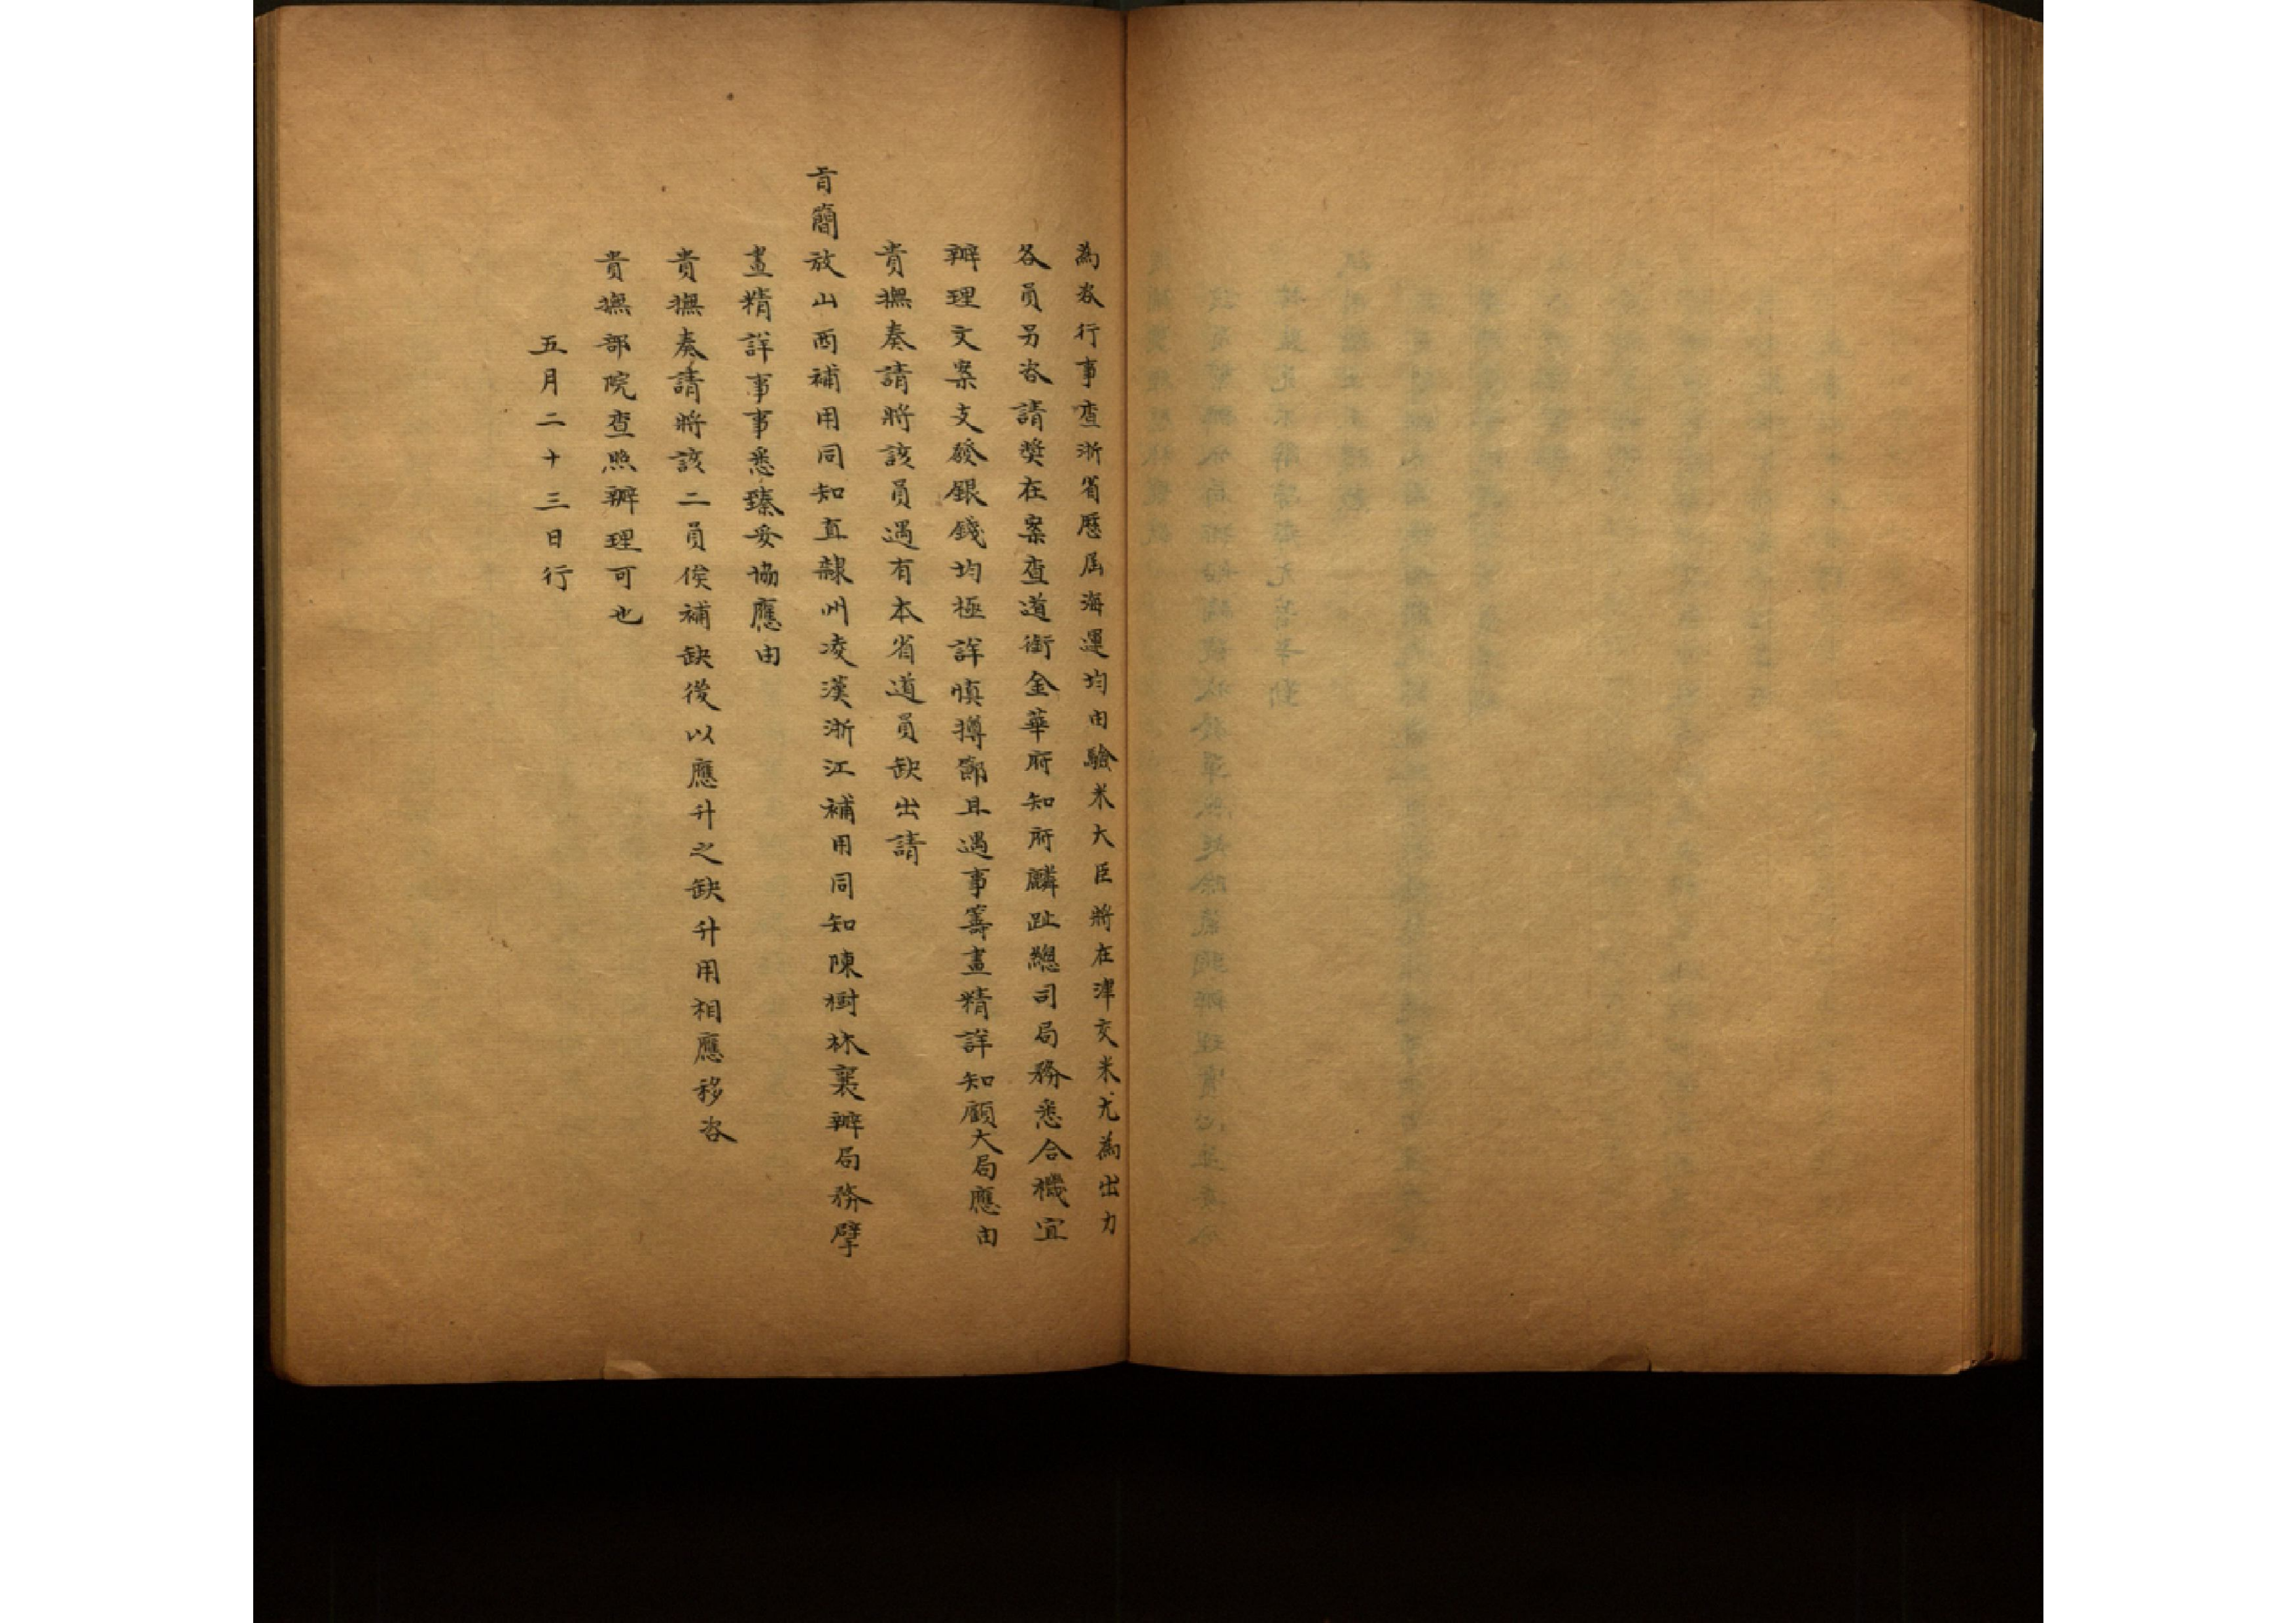 為咨行事查浙省歷屆海運均由驗米大臣將在津交米尤為出力
各員另咨請獎在案查道銜金華府知府麟趾總司局務悉合機宜
辦理文案支發銀錢均極詳慎撙節且遇事籌畫精詳知顧大局應由
貴撫奏請將該員遇有本省道員缺出請
旨簡放山西補用同知直隸州凌漢浙江補用同知陳樹林襄辦局務擘
畫精詳事事悉臻妥協應由
貴撫奏請將該二員俟補缺後以應升之缺升用相應移咨
貴撫部院查照辦理可也
五月二十三日行